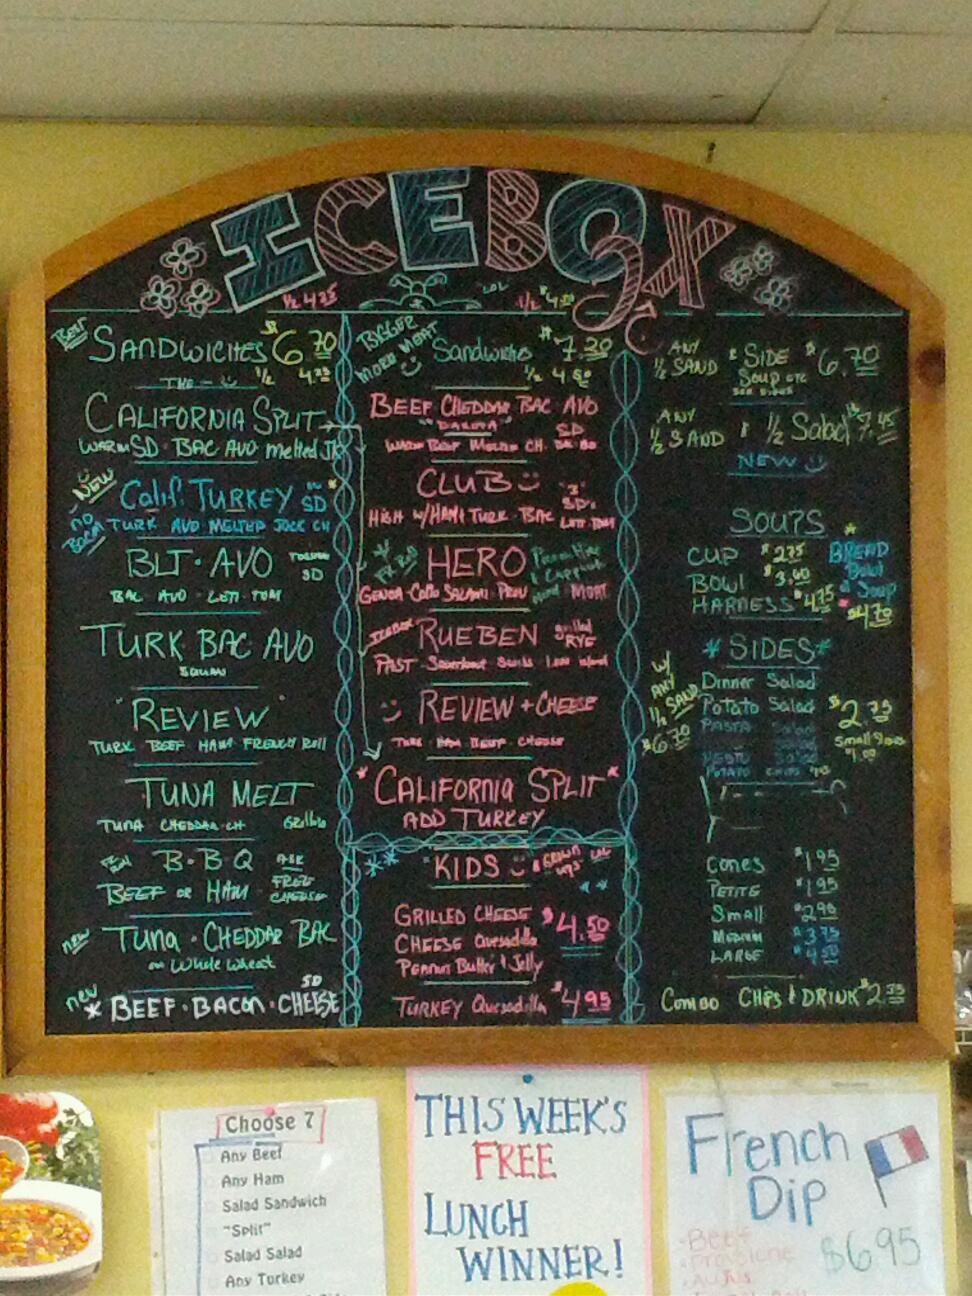 ICEBOX
1/2 4.35
LOL
BEEF
SANDWICHES $6.70
1/2 4.35
THE
CALIFORNIA SPLIT
WARM SD BAC AVO melted JK
NEW
Calif. TURKEY SD
no BACON TURK AVO MELTED JACK CH
BLT · AVO
SD
BAC AVO LETT TOM
TURK BAC AVO
"REVIEW"
TURK BEEF HAM FRENCH ROLL
TUNA MELT
TUNA CHEDDAR CH
B·B·Q
BEEF or HAM
new
Tuna · CHEDDAR BAC
on Whole Wheat
new
SD
* BEEF · BACON · CHEESE
BIGGER
MORE MEAT
Sandwiches $7.20
1/2 4.60
BEEF CHEDDAR BAC AVO
"DAKOTA" SD
CLUB "3"
HIGH w/HAM TURK BAC LETT TOM
HERO
GENOA COTTO SALAMI PROV MORT
ICEBOX
RUEBEN grilled RYE
PAST Sauerkraut Swiss 1000 island
REVIEW + CHEESE
TURK HAM BEEF CHEESE
*CALIFORNIA SPLIT*
ADD TURKEY
"KIDS
GRILLED CHEESE $4.50
CHEESE Quesadilla
Peanut Butter & Jelly
TURKEY Quesadilla $4.95
ANY 1/2 SAND & SIDE $6.70
SOUP ETC
ANY 1/2 SAND & 1/2 Salad $7.45
NEW
SOUPS
CUP $2.75
BOWL $3.60
HARNESS $4.75
BREAD Bowl & Soup
*SIDES*
Dinner Salad
Potato Salad
PASTA Salad
$2.75
w/ ANY 1/2 SAND $6.70
POTATO CHIPS
CONES $1.95
PETITE $1.95
Small $2.95
MEDIUM $3.75
LARGE
COMBO CHIPS & DRINK $2.35
Choose 7
Any Beef
Any Ham
Salad Sandwich
"Split"
Salad Salad
Any Turkey
THIS WEEK'S
FREE
LUNCH
WINNER!
French
Dip
Beef
Provolone
Au Jus
$6.95